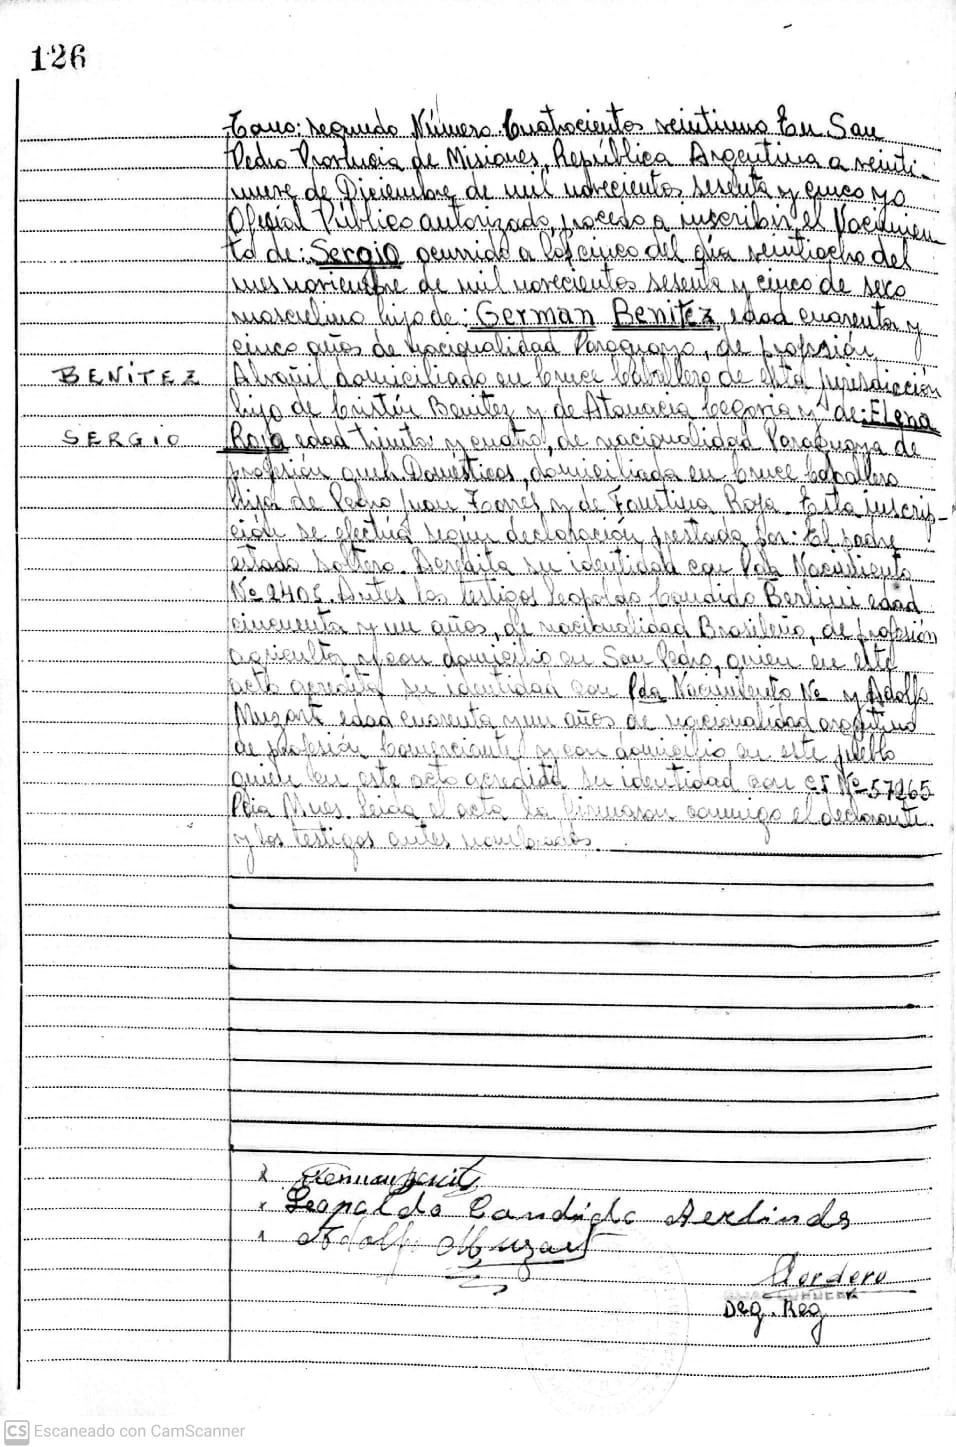 126
Tomo: segundo Número Cuatrocientos veintiuno En San
Pedro Provincia de Misiones, República Argentina a veinti-
nueve de Diciembre de mil novecientos sesenta y cinco yo
Oficial Público autorizado, procedo a inscribir el Nacimien-
to de: Sergio ocurrido a las cinco del día veintiocho del
mes noviembre de mil novecientos sesenta y cinco de sexo
masculino hijo de: German Benitez, edad cuarenta y
cinco años de nacionalidad Paraguayo, de profesión
BENITEZ
Albañil domiciliado en Cruce Caballero de esta jurisdicción
hijo de Benitez y de Atanacia y de: Elena
SERGIO
Roja edad treinta y cuatro, de nacionalidad Paraguaya de
profesión queh. Domésticos, domiciliada en Cruce Caballero
hija de Pedro Juan Torres y de Faustina Roja. Esta inscrip-
ción se efectúa según declaración prestada por: El padre
estado soltero. Acredita su identidad con Pda Nacimiento
Nº 2405. Antes los testigos Leopoldo Candido edad
cincuenta y un años, de nacionalidad Brasileño, de profesión
agricultor y con domicilio en San Pedro, quien en este
acto acredita su identidad con Pda Nacimiento Nº y Adolfo
Muzart edad cuarenta y un años de nacionalidad argentino
de profesión Comerciante y con domicilio en este pueblo
quien en este acto acredita su identidad con C.I Nº 57265
Pcia Mnes leida el acta la firmaron conmigo el declarante
y los testigos antes nombrados.
x German Benitz
x Leopoldo Candido
x Adolfo Muzart
Cordero
Deg. Reg
CS Escaneado con CamScanner